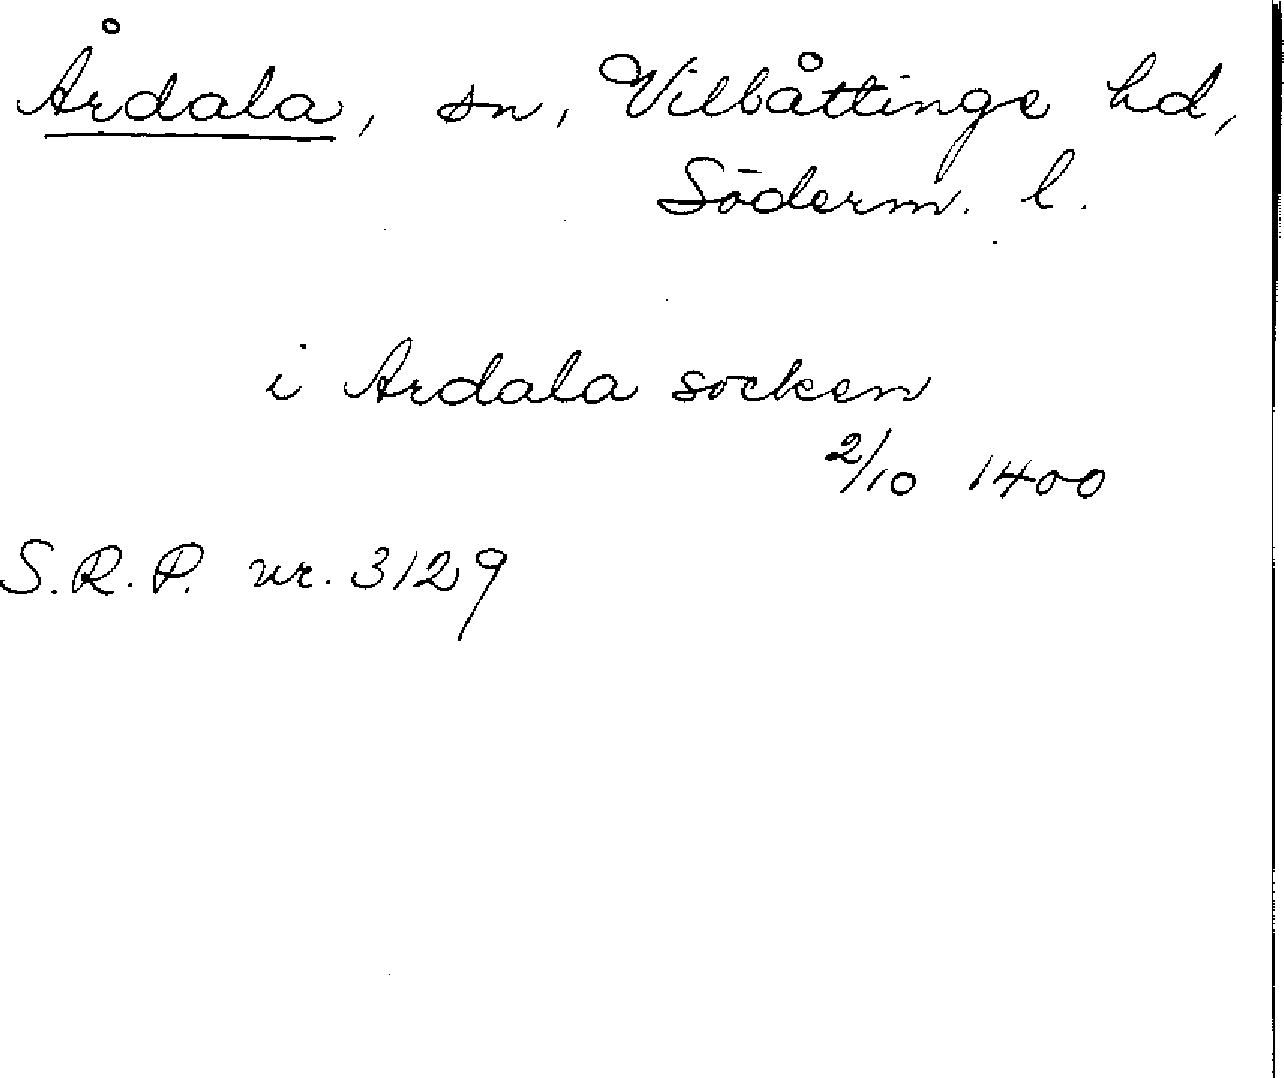 Årdala, sn, Vilbåttinge hd,
Söderm. l.
i Ardala socken
2/10 1400
S.R.P. nr. 3129